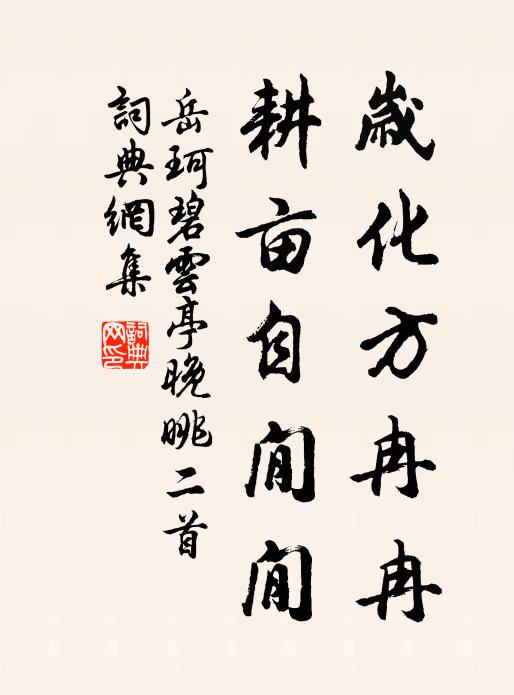 歲化方冉冉
耕亩自閒閒
岳珂碧雲亭晚眺二首
詞典網集
詞典网印